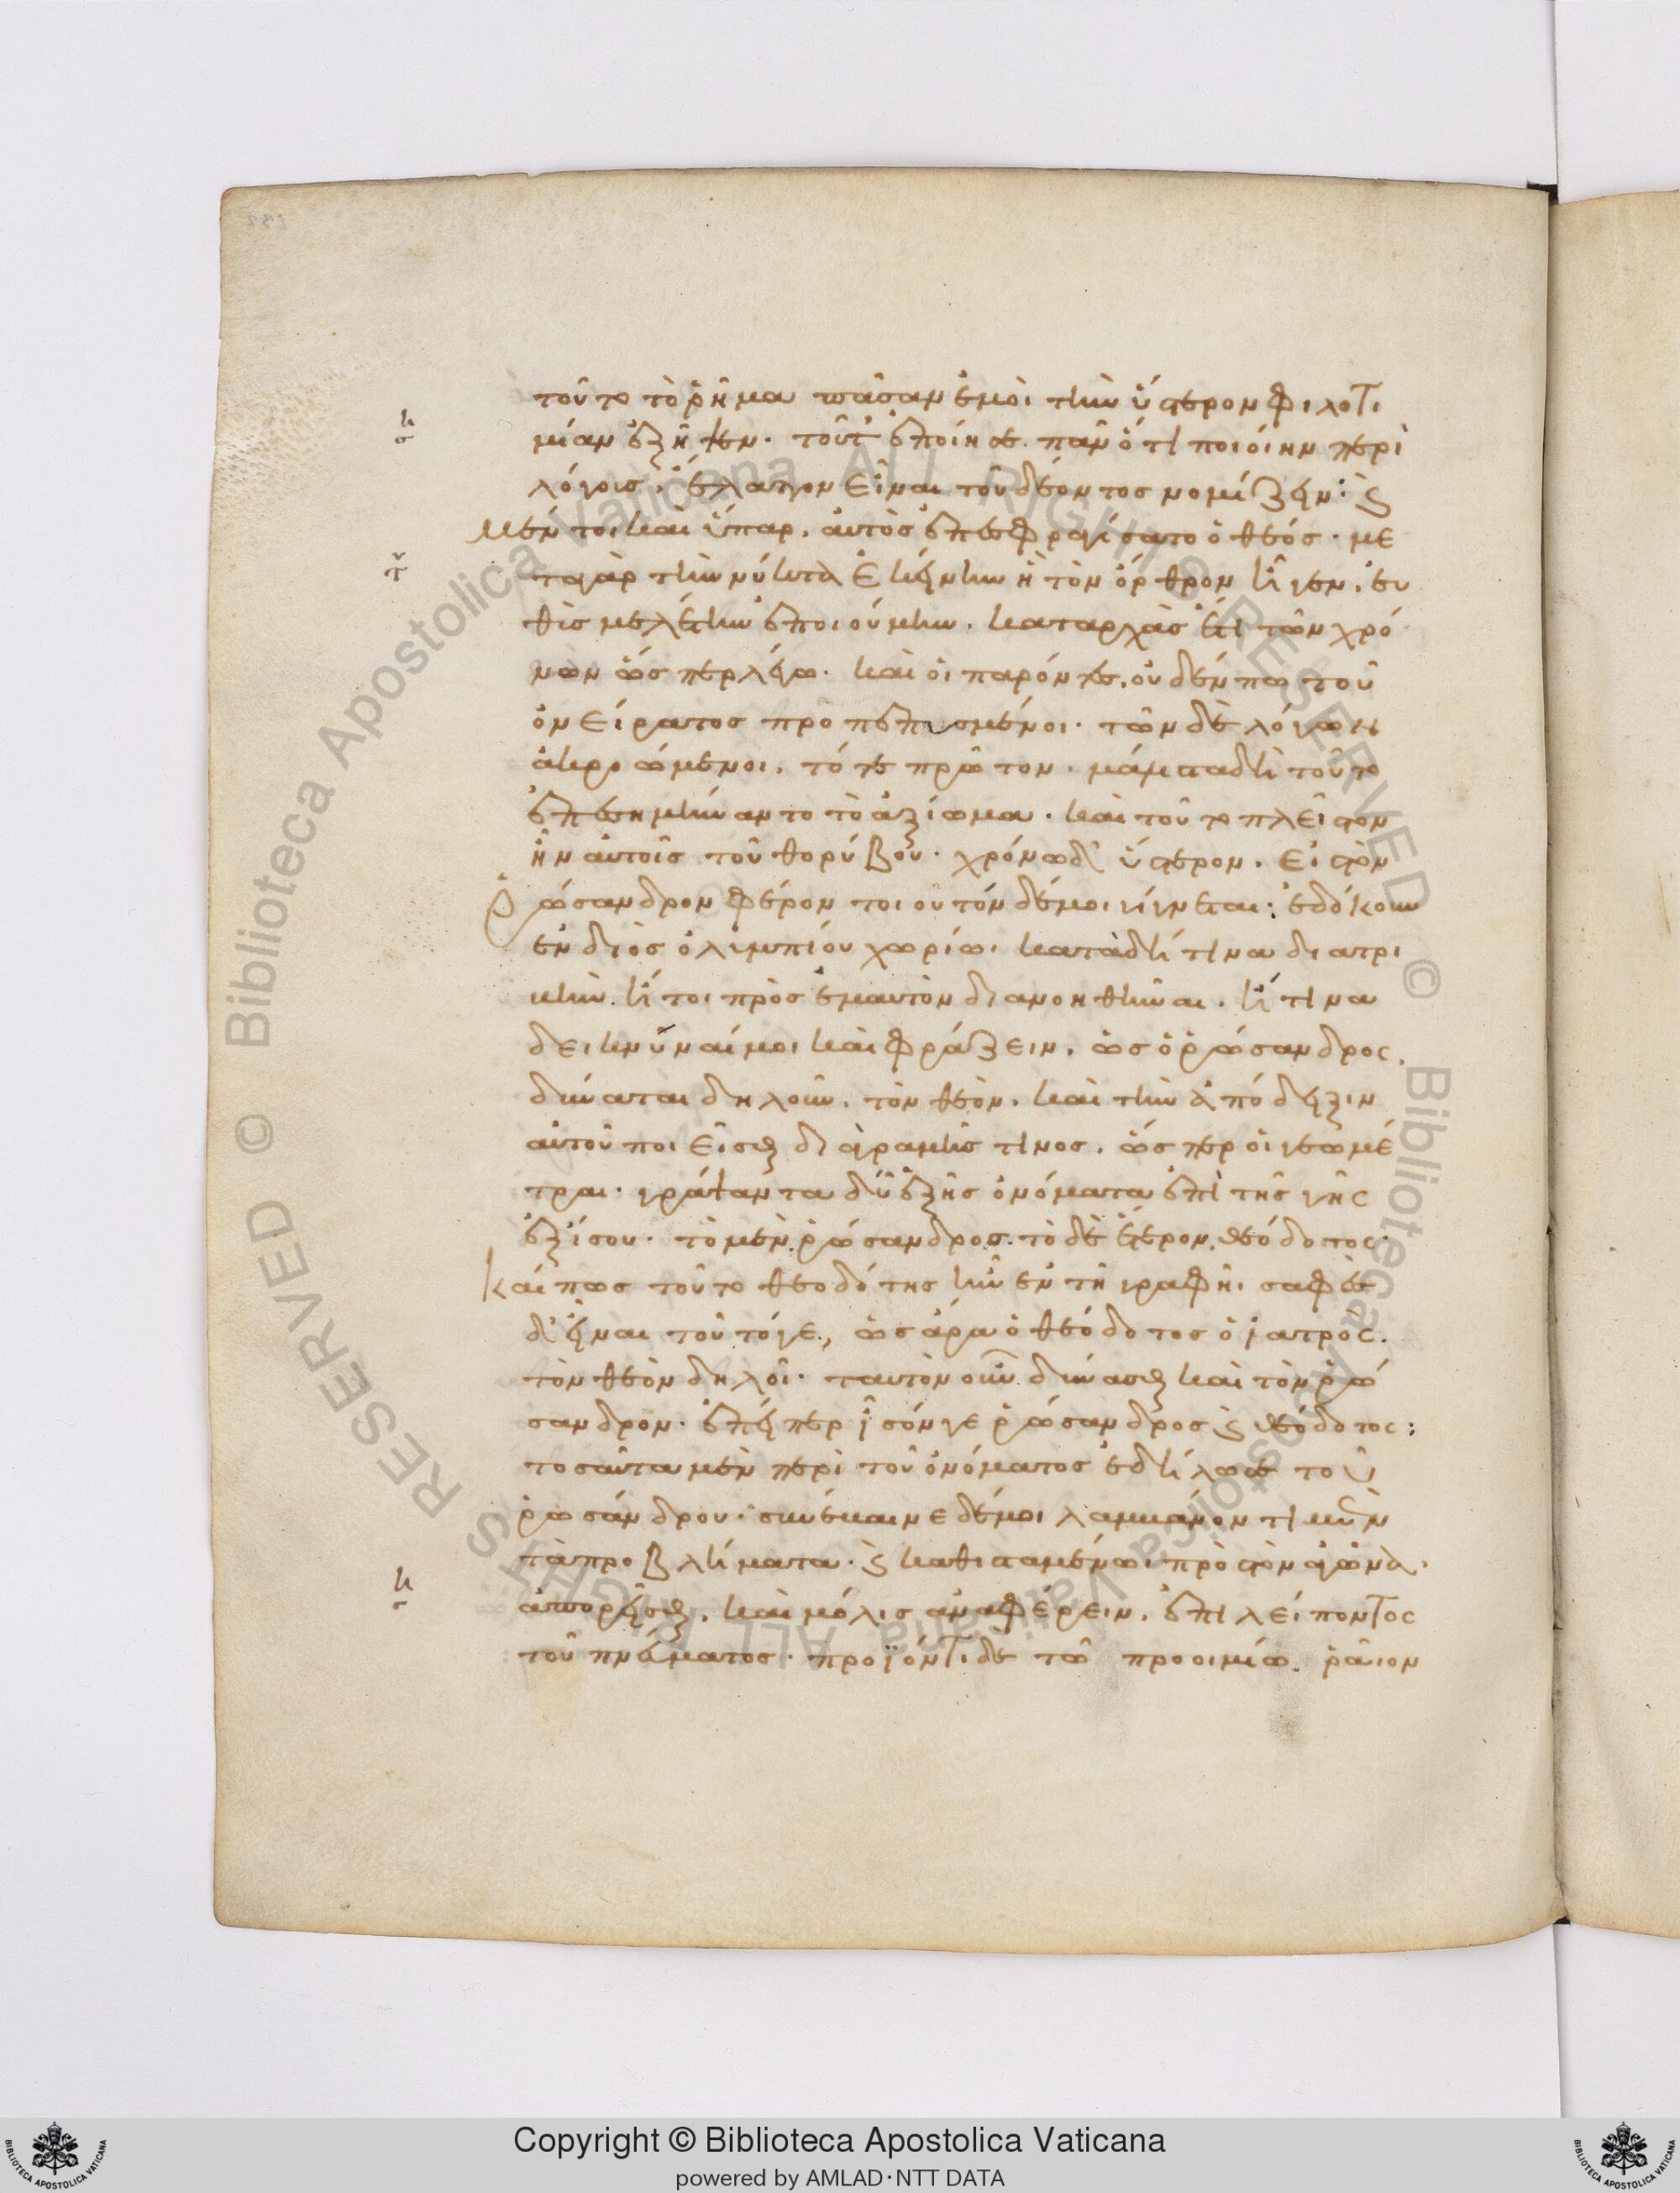 τοῦτο τὸ ῥῆμα πᾶσαν ἐμοὶ τὴν ὕστερον φιλοτι
μίαν ἐξῆψεν. τοῦτ' ἐποίησε πᾶν ὅτι ποιοίην περὶ
λόγοις, ἔλαττον εἶναι τοῦ δέοντος νομίζειν: καὶ
μέντοι καὶ ὕπαρ. αὐτὸς ἐπεσφραγίσατο ὁ θεός. με
τὰ γὰρ τὴν νύκτα ἐκείνην ἣ τὸν ὄρθρον ἦγεν. εὐ
θὺς μελέτην ἐποιούμην. κατ' ἀρχὰς ἔτι τῶν χρό
νων ὥσπερ λέγω. καὶ οἱ παρόντες, οὐδέν πω τοῦ
ὀνείρατος προπεπυσμένοι. τῶν δὲ λόγων
ἀκροώμενοι, τότε πρῶτον. μάλιστα δὴ τοῦτο
ἐπεσημήναντο τὸ ἀξίωμα. καὶ τοῦτο πλεῖστον
ἦν αὐτοῖς τοῦ θορύβου. χρόνω δ' ὕστερον. εἰς τὸν
ῥώσανδρον φέρον τοιουτόνδέ μοι γίγνεται: ἐδόκουν
ἐν διὸς ὀλυμπίου χωρίω. κατὰ δή τινα διατρι
βὴν. ἤτοι πρὸς ἐμαυτὸν διανοηθῆναι. ἤ τινα
δεικνῦναί μοι καὶ φράζειν. ὡς ὁ ῥώσανδρος.
δύναται δηλοῦν. τὸν θεὸν. καὶ τὴν ἀπόδειξιν
αὐτοῦ ποιεῖσθαι διὰ γραμμῆς τινος. ὥσπερ οἱ γεωμέ
τραι. γράψαντα δύ' ἑξῆς ὀνόματα ἐπὶ τῆς γῆς
ἐξίσου. τὸ μὲν ῥώσανδρος. τὸ δὲ ἕτερον θεόδοτος.
καί πως τοῦτο θεοδότης ἦν ἐν τῆ γραφῆ. σαφὲς
δ' εἶναι τοῦτό γε, ὡς ἄρα ὁ θεόδοτος ὁ ἰατρὸς.
τὸν θεὸν δηλοῖ. ταυτὸν οὖν δύνασθαι καὶ τὸν ῥώ
σανδρον. ἐπείπερ ἶσόν γε ῥώσανδρος καὶ θεόδοτος:
τοσαῦτα μὲν περὶ τοῦ ὀνόματος ἐδήλωσε τοῦ
ῥωσάνδρου. συνέβαινε δέ μοι λαμβάνοντι μὲν
τὰ προβλήματα. καὶ καθισταμένω πρὸς τὸν ἀγῶνα.
ἀπορεῖσθαι. καὶ μόλις ἀναφέρειν. ἐπιλείποντος
τοῦ πνεύματος. προϊόντι δὲ τῶ προοιμίω. ῥᾶιον